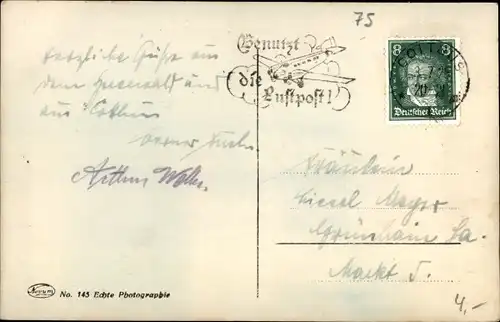 75
Benutzt
die
Luftpost!
COTTBUS
8 8
Deutsches Reich
Herzliche Grüße aus
dem Spreewald und
aus Cottbus
Arthur
Fräulein
Liesel Meyer
Grünhain Sa.
Markt 5.
4,-
Novum No. 145 Echte Photographie